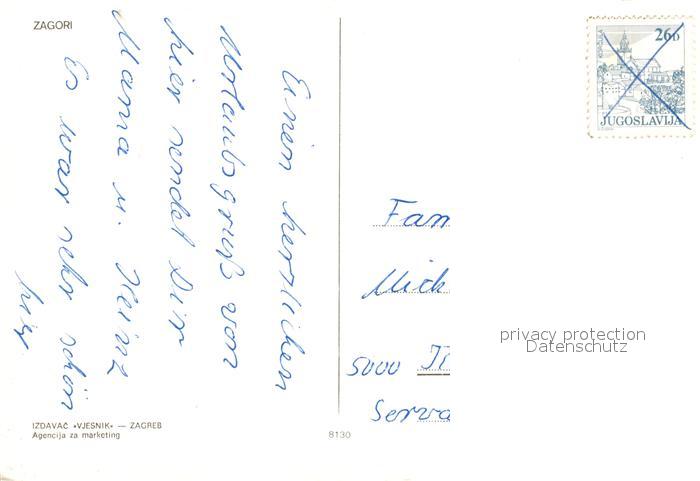 ZAGORI
26D
JUGOSLAVIJA
Einen herzlichen
Urlaubsgruß von
hier sendet Dir
Mama u. Heinz
Es war sehr schön
hier
Fam
Mich
5000
Serva
privacy protection
Datenschutz
IZDAVAČ »VJESNIK« — ZAGREB
Agencija za marketing
8130